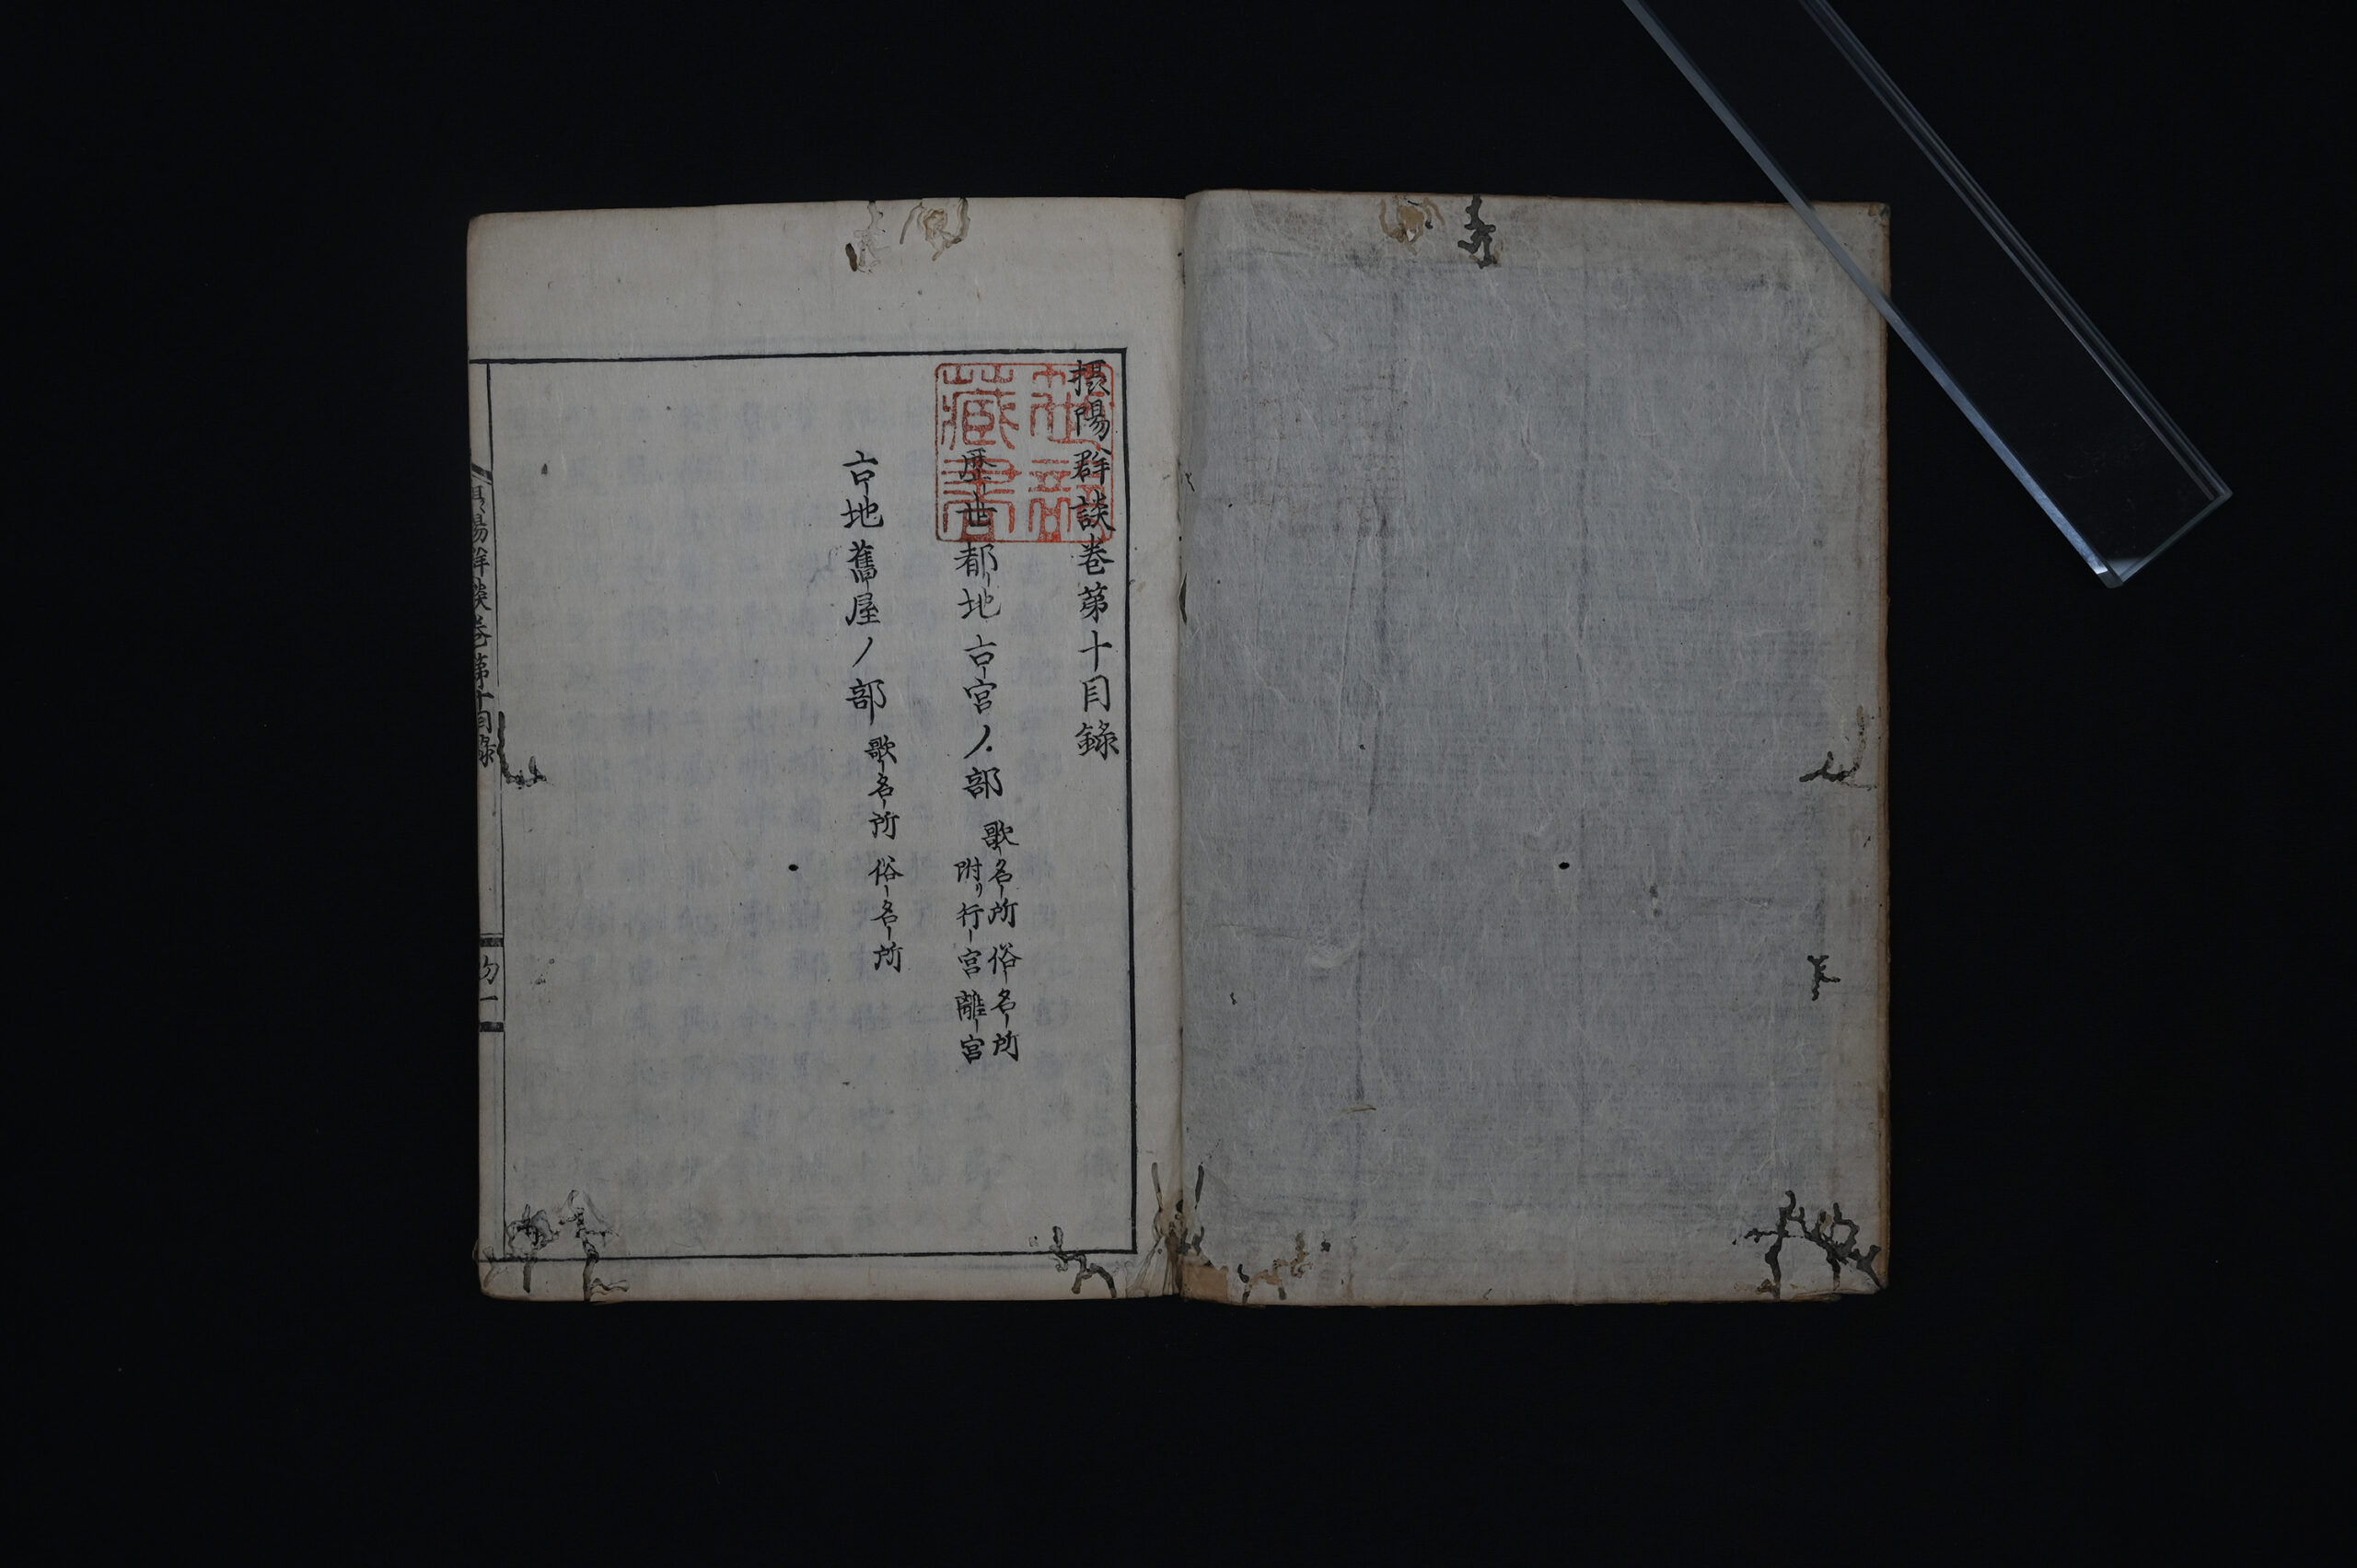 摂陽群談巻第十目録
歴世都地古宮ノ部
歌名所俗名所
附リ行宮離宮
古地舊屋ノ部
歌名所俗名所
陽群談巻第十目録